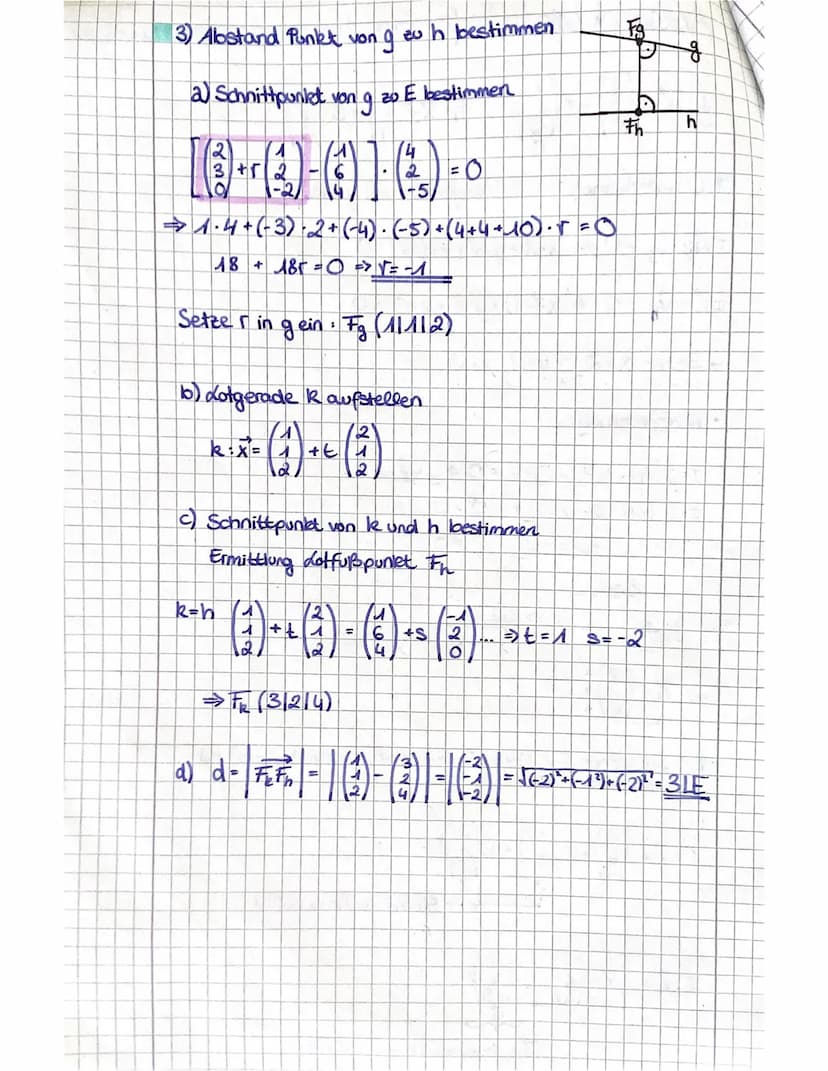 3) Abstand Punkt von g zu h bestimmen
Fg
g
Fh
h
a) Schnittpunkt von g zu E bestimmen
[(2 3 0) + r (1 2 -2) - (1 6 4)] · (4 2 -5) = 0
⇒ 1·4+(-3)·2+(-4)·(-5)+(4+4+10)·r = 0
18 + 18r = 0 ⇒ r = -1
Setze r in g ein: Fg (1|1|2)
b) Lotgerade k aufstellen
k: x⃗ = (1 1 2) + t (2 1 2)
c) Schnittpunkt von k und h bestimmen
Ermittlung Lotfußpunkt Fh
k=h (1 1 2) + t (2 1 2) = (1 6 4) + s (-1 2 0) ... ⇒ t = 1 s = -2
⇒ Fk (3|2|4)
d) d = |FkFh| = |(1 1 2) - (3 2 4)| = |(-2 -1 -2)| = √(-2)²+(-1²)+(-2)² = 3LE